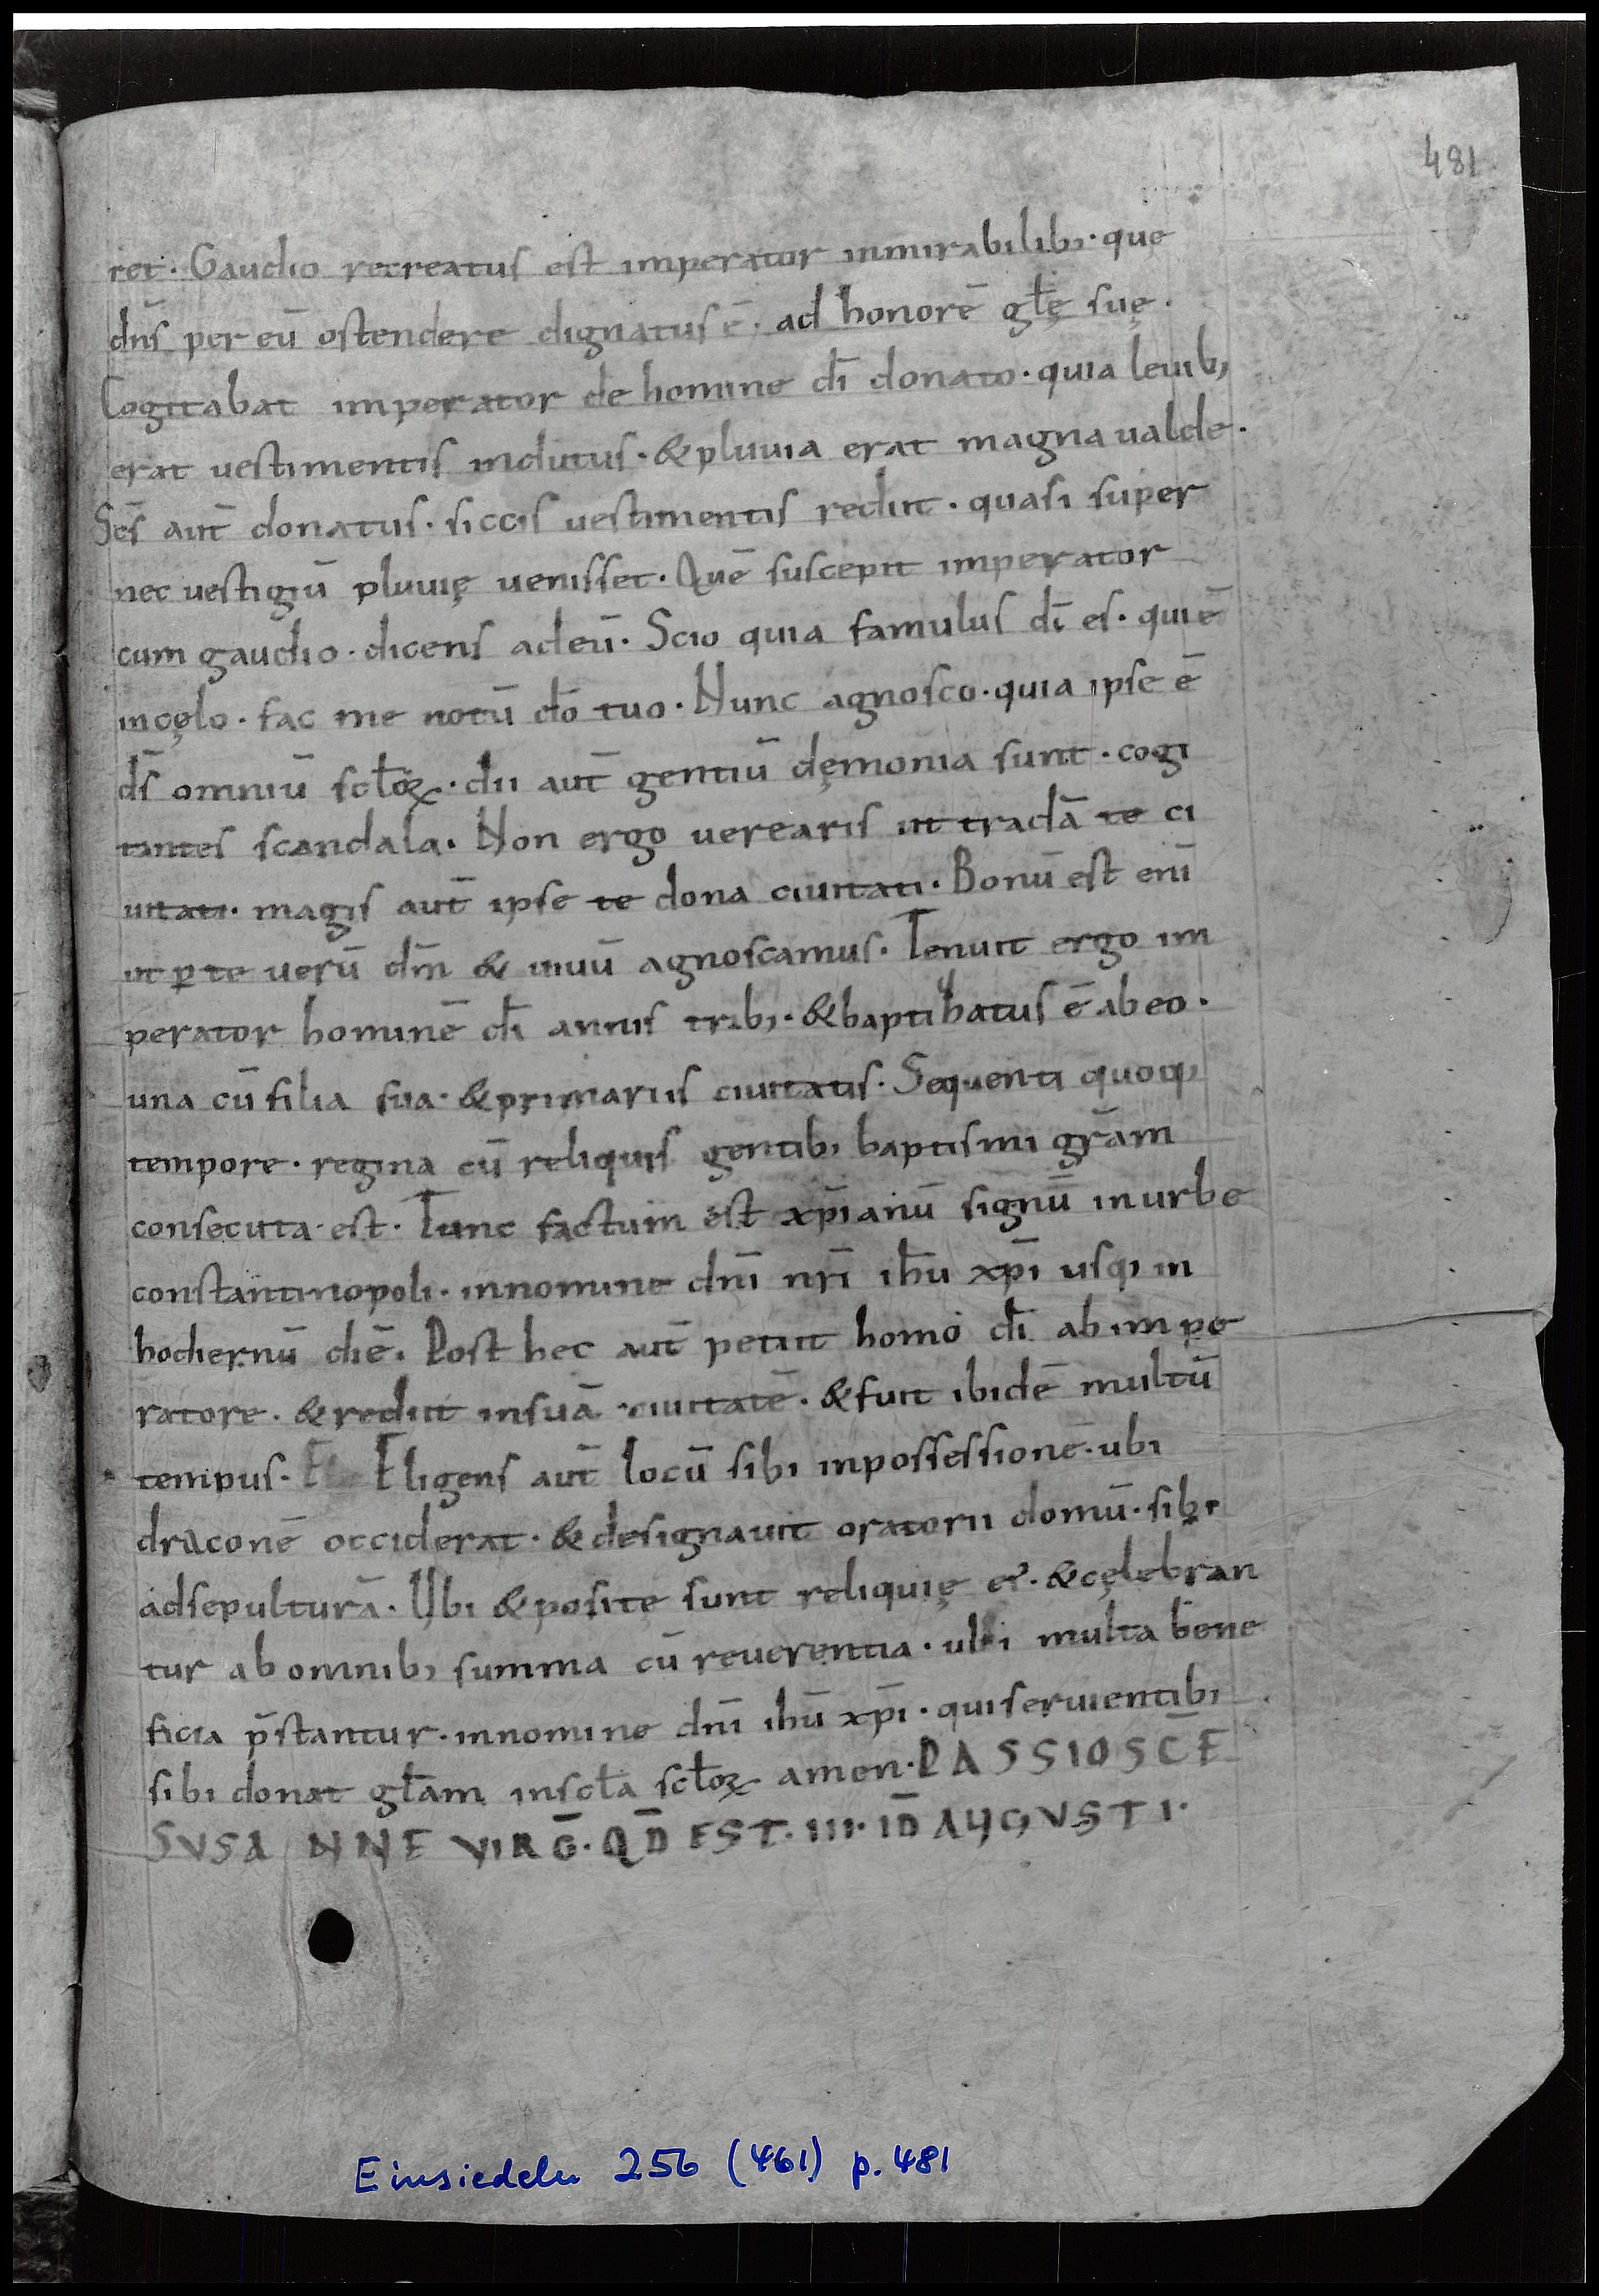 481
ret. Gaudio recreatus est imperator inmirabilib; · que
dn̄s per eū ostendere dignatus ē · ad honorē gl̄ę suę.
Cogitabat imperator de homine dī donato · quia leuib;
erat uestimentis indutus · & pluuia erat magna ualde.
Scs̄ aut̄ donatus · siccis uestimentis rediit · quasi super
nec uestigiū pluuię uenisset. Quē suscepit imperator
cum gaudio · dicens adeū. Scio quia famulus dī es · qui ē
incęlo · fac me notū dō tuo. Nunc agnosco · quia ipse ē
ds̄ omniū sc̄loꝝ · dii aut̄ gentiū dęmonia sunt · cogi
tantes scandala. Non ergo uerearis ut tradā te ci
uitati · magis aut̄ ipse te dona ciuitati. Bonū est enī
ut ꝑ te uerū dm̄ & uiuū agnoscamus. Tenuit ergo im
perator hominē dī annis trib; · & baptizatus ē abeo ·
una cū filia sua · & primariis ciuitatis. Sequenti quoq;
tempore · regina cū reliquis gentib; baptismi grām
consecuta · est. Tunc factum est xp̄ianū signū inurbe
constantinopoli · innomine dn̄i nr̄i ihū xp̄i usq; in
hodiernū diē. Post hec aut̄ petiit homo dī ab impe
ratore · & rediit insuā ciuitatē · & fuit ibidē multū
tempus. Eligens aut̄ locū sibi inpossessionē · ubi
draconē occiderat · & designauit oratorii domū · sibi
adsepulturā. Ubi & positę sunt reliquię ei᷒ · & cęlebran
tur ab omnib; summa cū reuerentia · ubi multa bene
ficia p̄stantur · innomine dn̄i ihū xp̄i · qui seruientib;
sibi donat gl̄am insc̄la sc̄loꝝ amen. PASSIO SC̄E
SVSANNE VIRḠ · QD̄ EST · III · ID̄ AUGVSTI ·
Einsiedeln 256 (461) p. 481